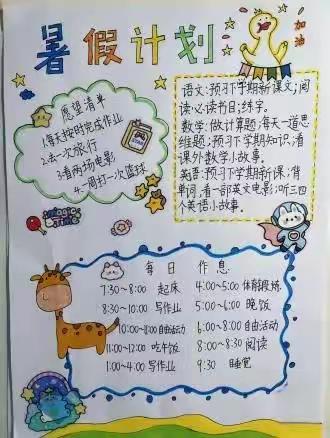 暑假计划
加油
愿望清单
1.每天按时完成作业
2.去一次旅行
3.看两场电影
4.一周打一次篮球
语文:预习下学期新课文;阅
读必读书目;练字。
数学:做计算题,每天一道思
维题;预习下学期知识;看
课外数学小故事。
英语:预习下学期新课;背
单词,看一部英文电影;听三四
个英语小故事。
magic
Time
每日作息
7:30~8:00 起床
8:30~10:00 写作业
10:00~11:00 自由活动
11:00~12:00 吃午饭
1:00~4:00 写作业
4:00~5:00 体育锻炼
5:00~6:00 晚饭
6:00~8:00 自由活动
8:00~8:30 阅读
9:30 睡觉